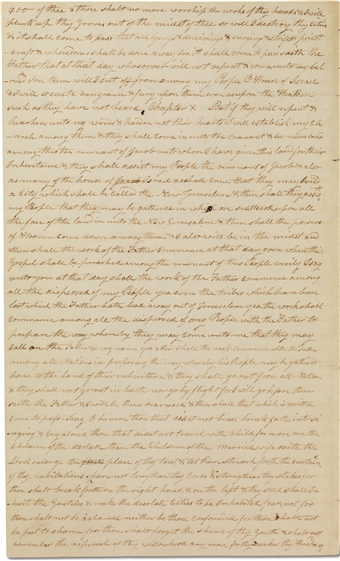 of thee & thou shalt no more worship the works of thy hands & I will
pluck up thy groves out of the midst of thee so will I destroy thy cities
& it shall come to pass that all lyings & deceivings & envyings & strifes & priest
crafts & whoredoms shall be done away for it shall come to pass saith the
Father that at that day whosoever will not repent & come unto my bel
oved Son them will I cut off from among my People O House of Israel
& I will execute vengeance & fury upon them even as upon the Heathen
such as they have not heard Chapter X But if they will repent &
hearken unto my words & harden not their hearts I will establish my ch
urch among them & they shall come in unto the covenant & be numbered
among this the remnant of Jacob unto whom I have given this land for their
inheritance & they shall assist my People the remnant of Jacob & also
as many of the house of Israel as shall come that they may build
a City which shall be called the New Jerusalem & then shall they assist
my People that they may be gathered in who are scattered upon all
the face of the land in unto the New Jerusalem & then shall the power
of Heaven come down among them & I also will be in the midst and
then shall the work of the Father commence at that day even when this
Gospel shall be preached among the remnant of this People verily I say
unto you at that day shall the work of the Father commence among
all the dispersed of my People yea even the tribes which have been
lost which the Father hath led away out of Jerusalem yea the work shall
commence among all the dispersed of my People with the Father to
prepare the way whereby they may come unto me that they may
call on the Father in my name yea & then shall the work commence with the Father
among all Nations in preparing the way whereby his People may be gathered
home to the land of their inheritance & they shall go out from all Nations
& they shall not go out in haste nor go by flight for I will go before them
saith the Father & I will be their rearward & then shall that which is written
come to pass Sing O barren thou that didst not bear break forth into si
nging & cry aloud thou that didst not travail with child for more are the
children of the desolate than the children of the married wife saith the
Lord enlarge the place of thy tent & let them stretch forth the curtains
of thy habitations spare not lengthen thy cords & strengthen thy stakes for
thou shalt break forth on the right hand & on the left & thy seed shall in
herit the Gentiles & make the desolate cities to be inhabited fear not for
thou shalt not be ashamed neither be thou confounded for thou shalt not
be put to shame for thou shalt forget the shame of thy youth & shalt not
remember the reproach of thy widowhood any more for thy maker thy husband